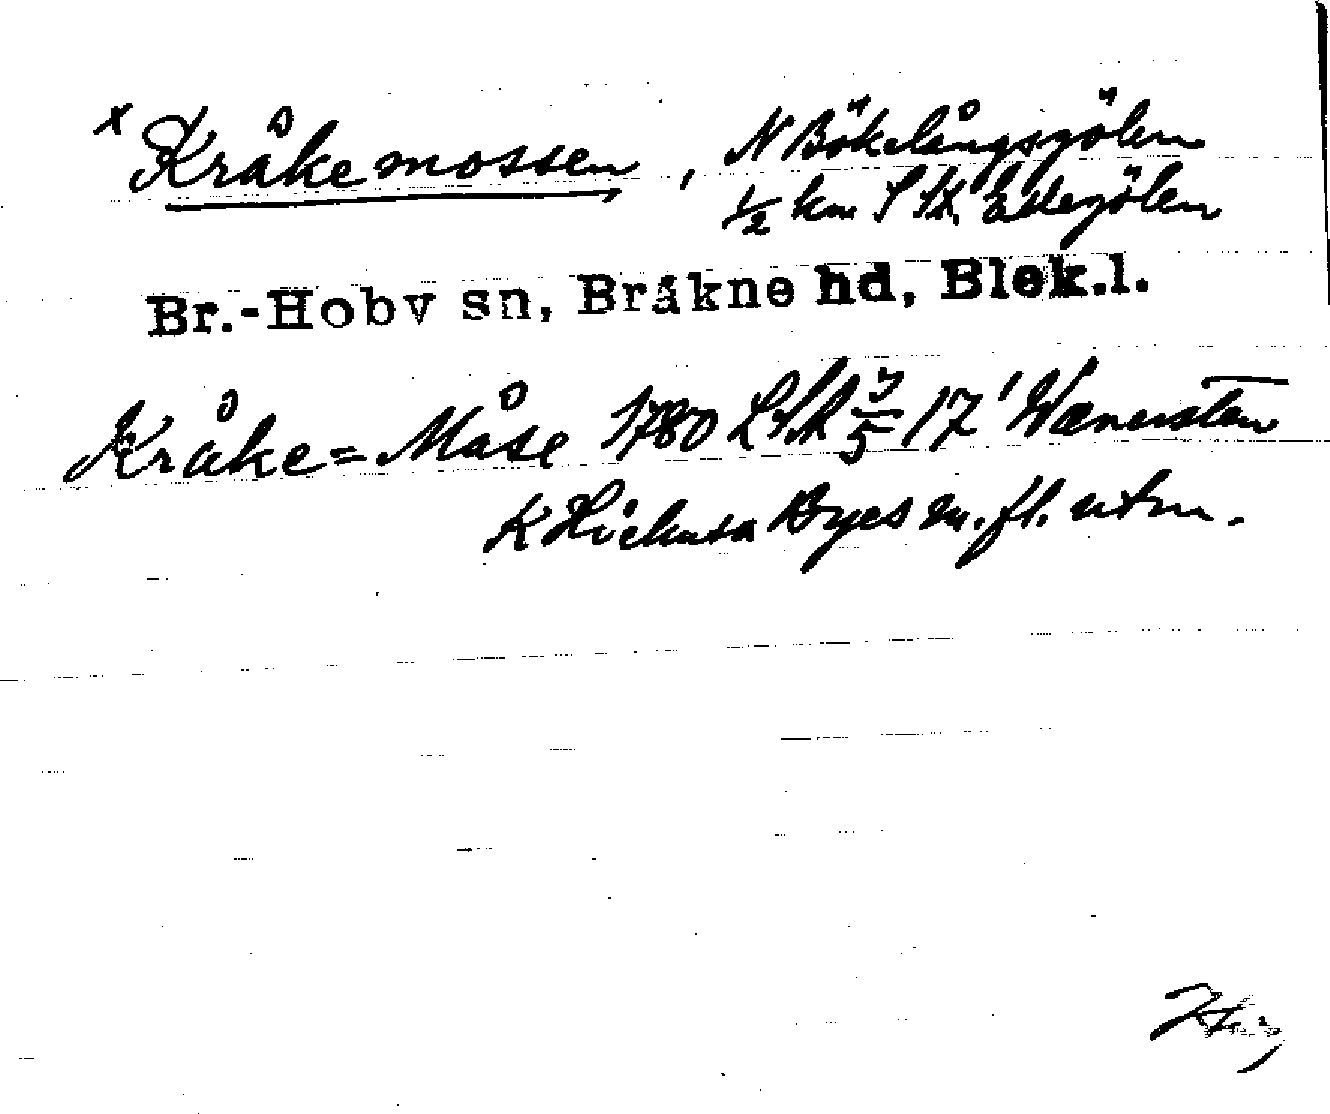 x Kråkemossen, N Bökelångsgölen
½ km S St. Ättegölen
Br.-Hoby sn, Bråkne hd, Blek.l.
Kråke=Måse 1780 LSA 3/5 17' Wanersten
K Hickusa Byes m.fl. utm.